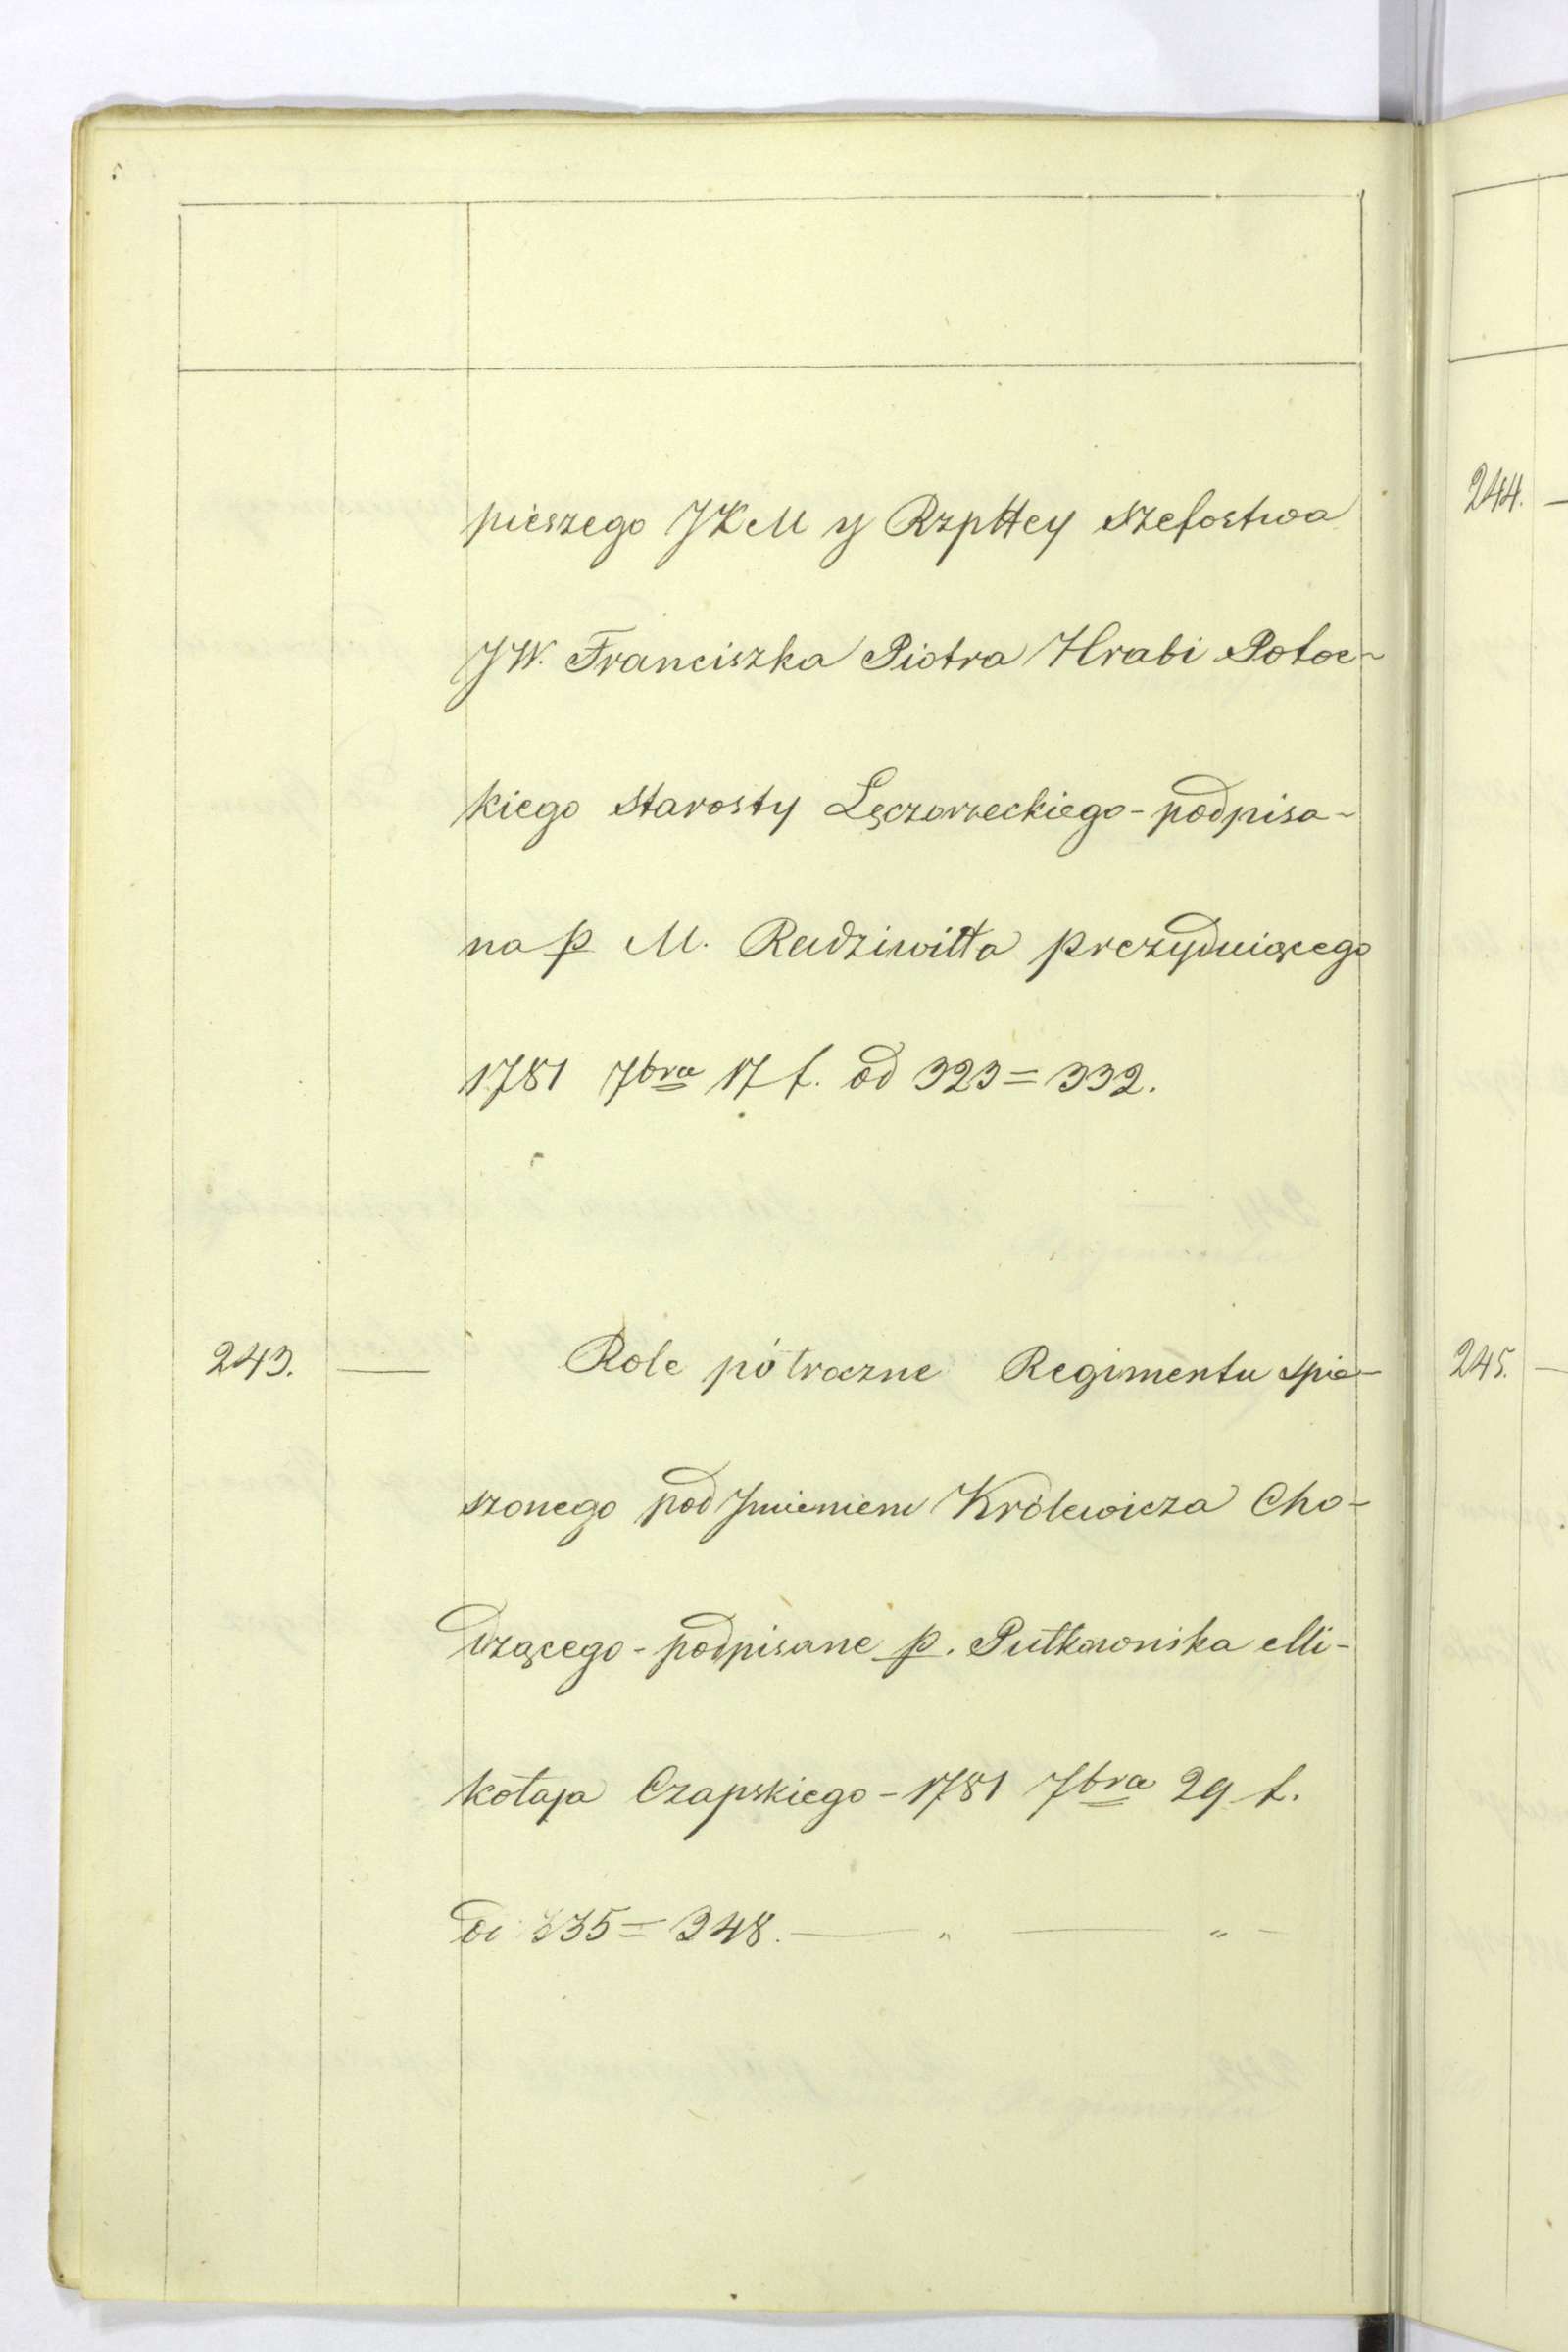 pieszego JKM y Rzpttey szefostwa
JW. Franciszka Piotra Hrabi Potoc-
kiego starosty Lęczorzeckiego - podpisa-
na p M. Radziwiłła prezyduiącego
1781 7bra 17 f. od 323 = 332.
243. — Role półroczne Regimentu spie-
szonego pod Jmieniem Królewicza Cho-
dzącego - podpisane p. Pułkownika Mi-
kołaja Czapskiego - 1781 7bra 29 f.
od 335 = 348. — " — " —
244. —
245. —